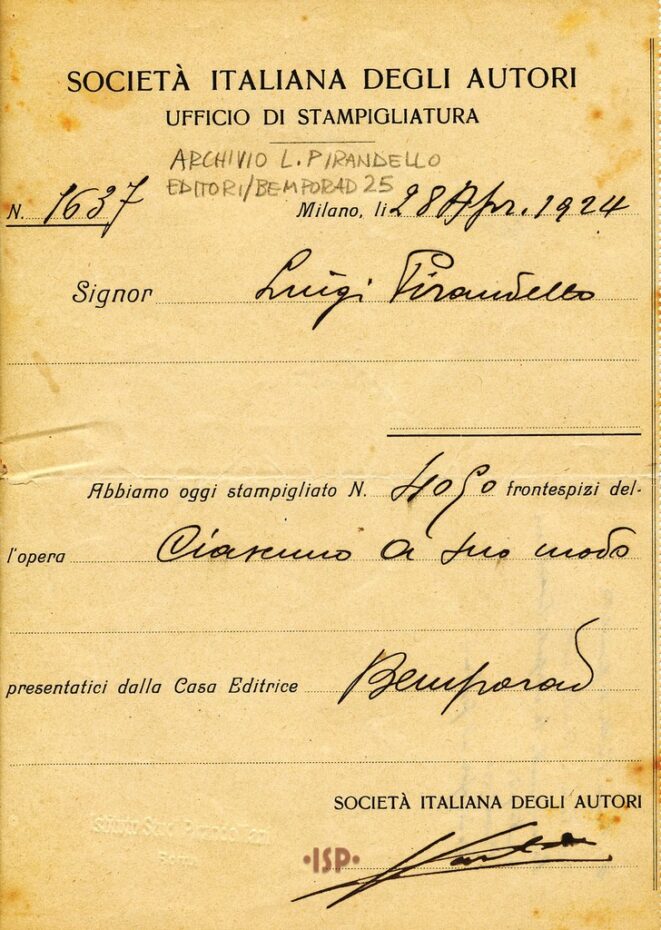 SOCIETÀ ITALIANA DEGLI AUTORI
UFFICIO DI STAMPIGLIATURA
ARCHIVIO L. PIRANDELLO
EDITORI/BEMPORAD 25
N. 1637 Milano, li 28 Apr. 1924
Signor Luigi Pirandello
Abbiamo oggi stampigliato N. 4050 frontespizi del-
l'opera Ciascuno a suo modo
presentatici dalla Casa Editrice Bemporad
SOCIETÀ ITALIANA DEGLI AUTORI
•ISP•